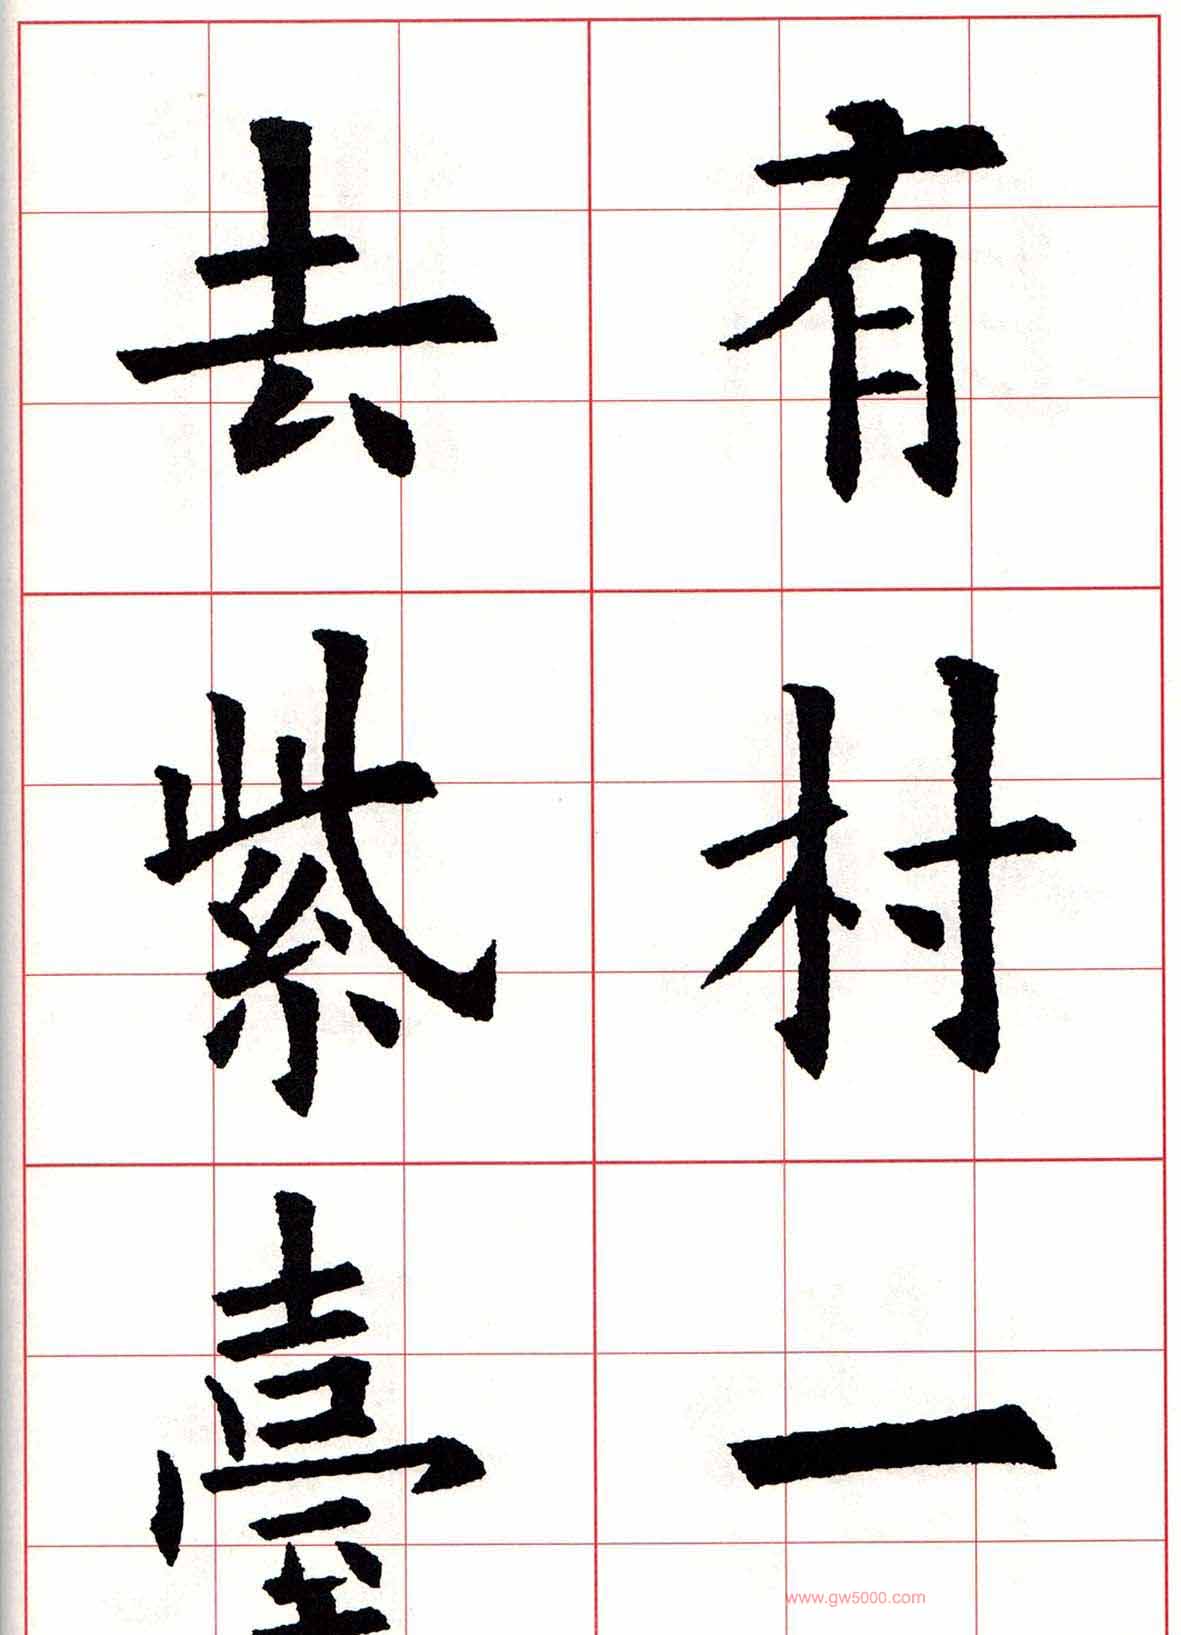 有村一
去紫臺
www.gw5000.com